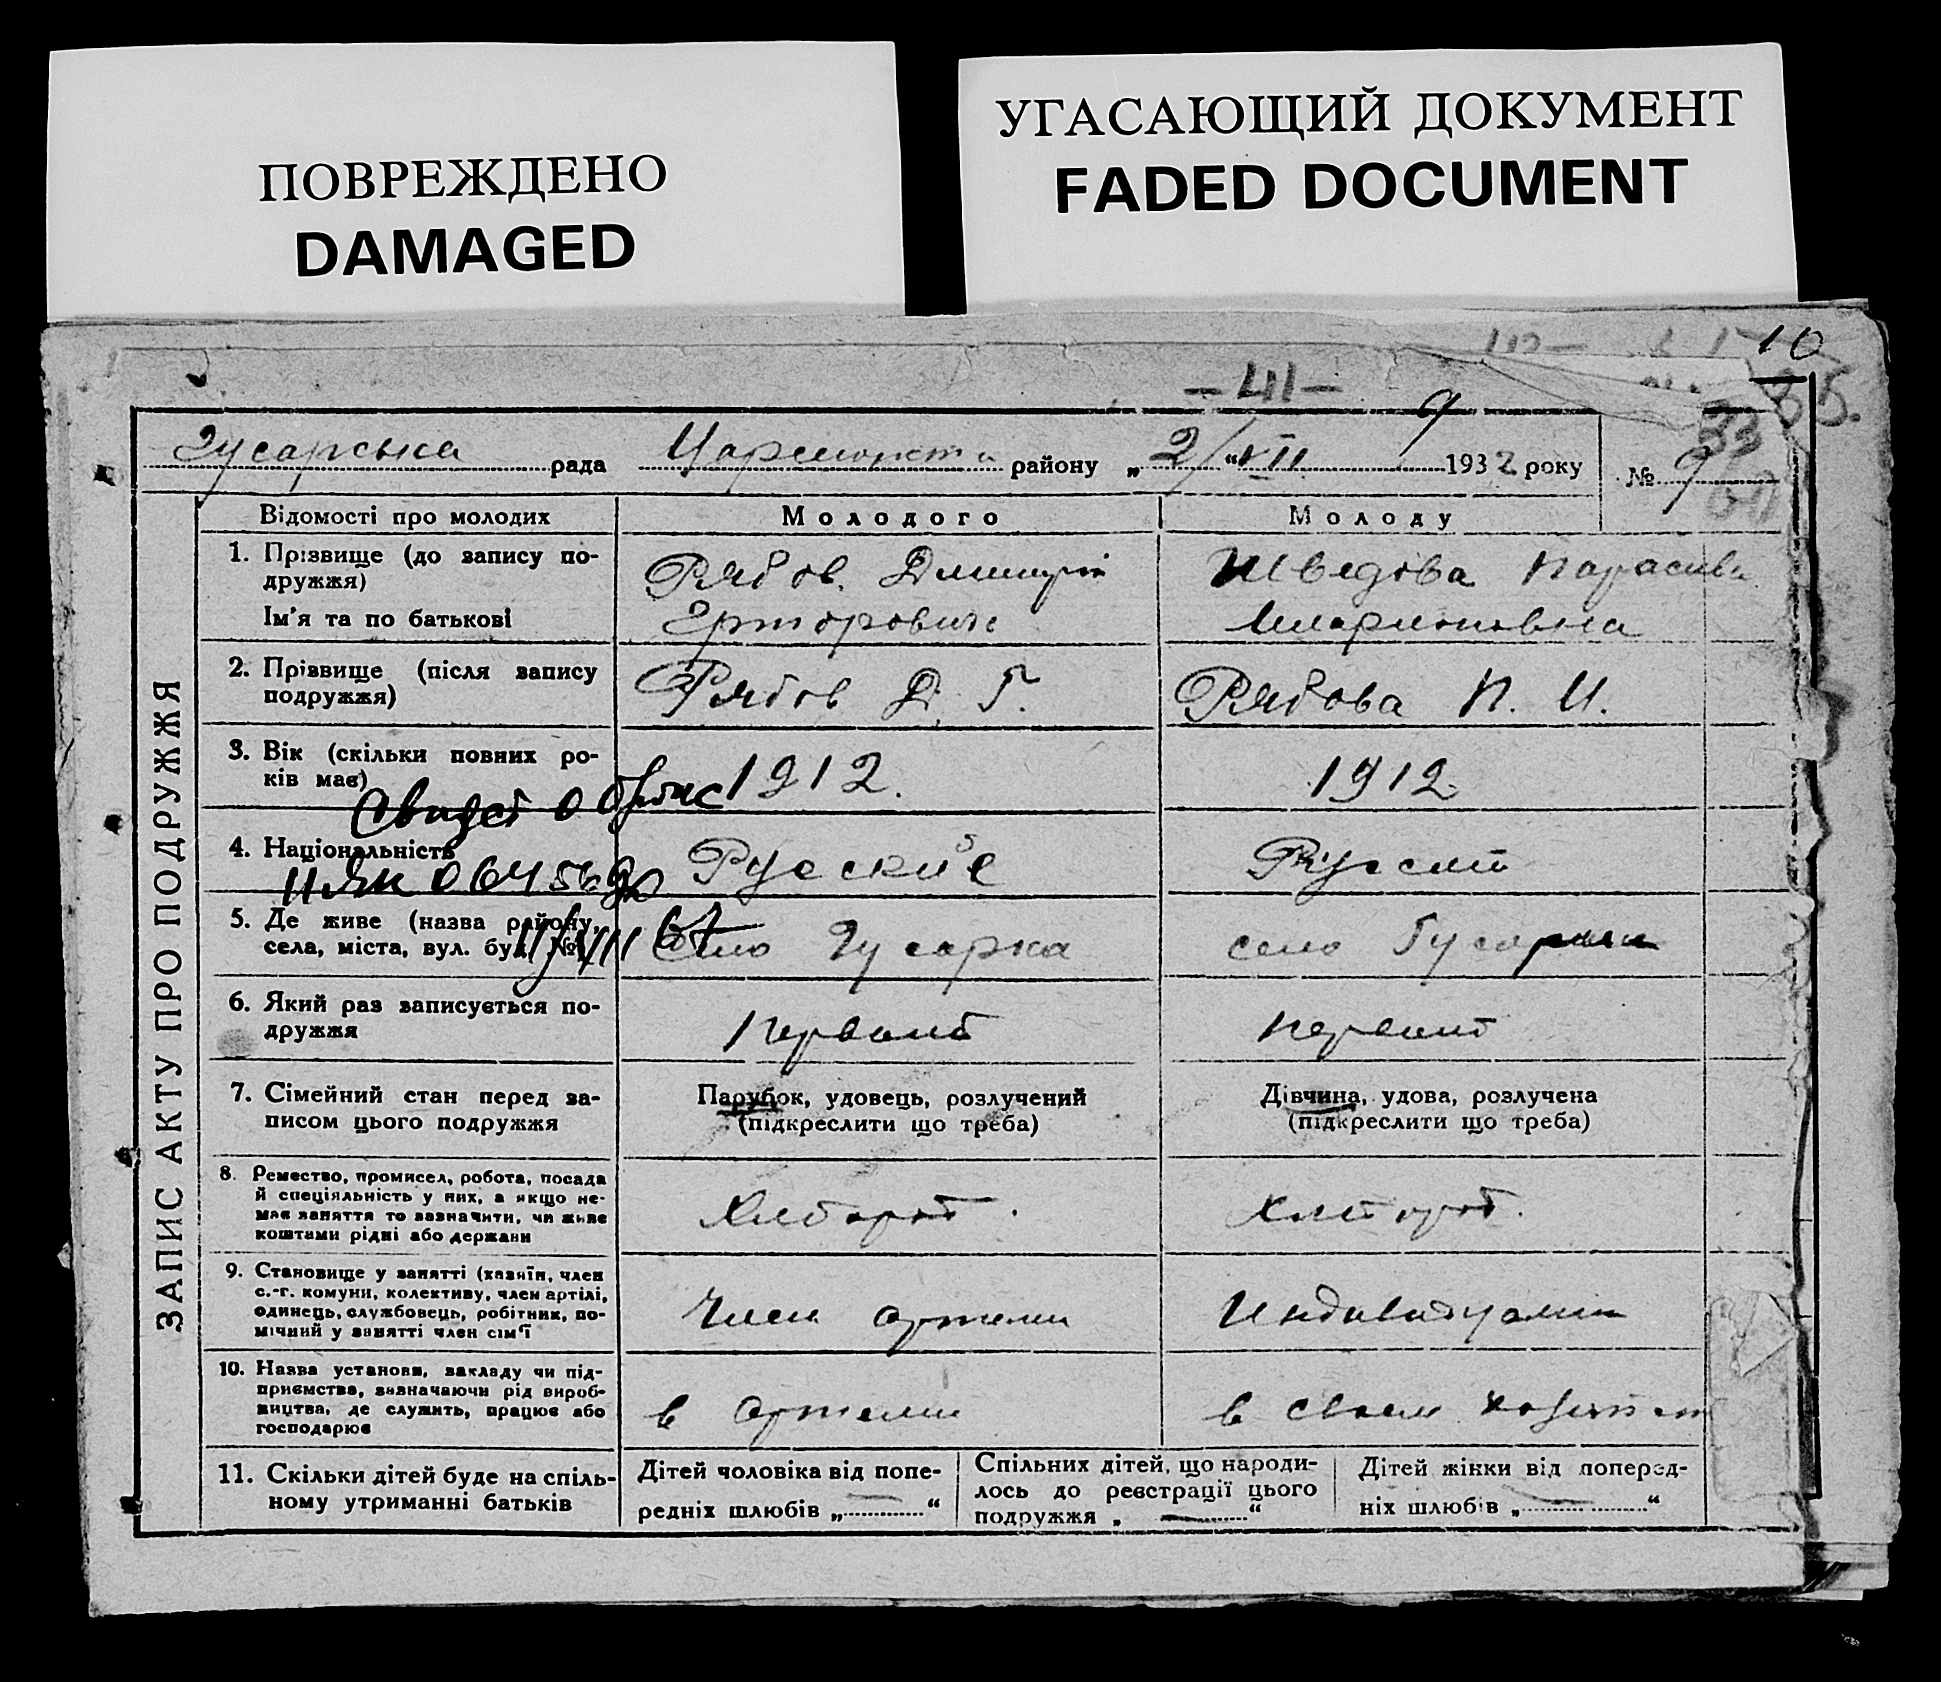 ПОВРЕЖДЕНО
DAMAGED
УГАСАЮЩИЙ ДОКУМЕНТ
FADED DOCUMENT
10
35.
33
Гусарська рада району „2/“ VII 1932 року № 9
ЗАПИС АКТУ ПРО ПОДРУЖЖЯ
Відомості про молодих Молодого Молоду
1. Прізвище (до запису по-
дружжя)
Ім'я та по батькові
Рябов Дмитрій
Шведова Параскива
Иларионовна
2. Прізвище (після запису
подружжя)
Рябов Д. Г.
Рябова П. И.
3. Вік (скільки повних ро-
ків має)
1912.
1912.
Свидет о брак
4. Національність
Руский
5. Де живе (назва району,
села, міста, вул. буд. №)
Село Гусарка
село Гусарка
6. Який раз записується по-
дружжя
первый
первый
7. Сімейний стан перед за-
писом цього подружжя
Парубок, удовець, розлучений
(підкреслити що треба)
Дівчина, удова, розлучена
(підкреслити що треба)
8. Ремество, промисел, робота, посада
й спеціяльність у них, а якщо не-
має заняття то зазначити, чи живе
коштами рідні або держави
Хлебороб.
Хлебороб.
9. Становище у занятті (хазяїн, член
с.-г. комуни, колективу, член артілі,
одинець, службовець, робітник, по-
мічний у занятті член сім'ї
Член артели
10. Назва установи, закладу чи під-
приємства, зазначаючи рід вироб-
ництва, де служить, працює або
господарює
в артели
в своем
11. Скільки дітей буде на спіль-
ному утриманні батьків
Дітей чоловіка від попе-
редніх шлюбів „ — “
Спільних дітей, що народи-
лось до реєстрації цього
подружжя „ — “
Дітей жінки від поперед-
ніх шлюбів „ — “